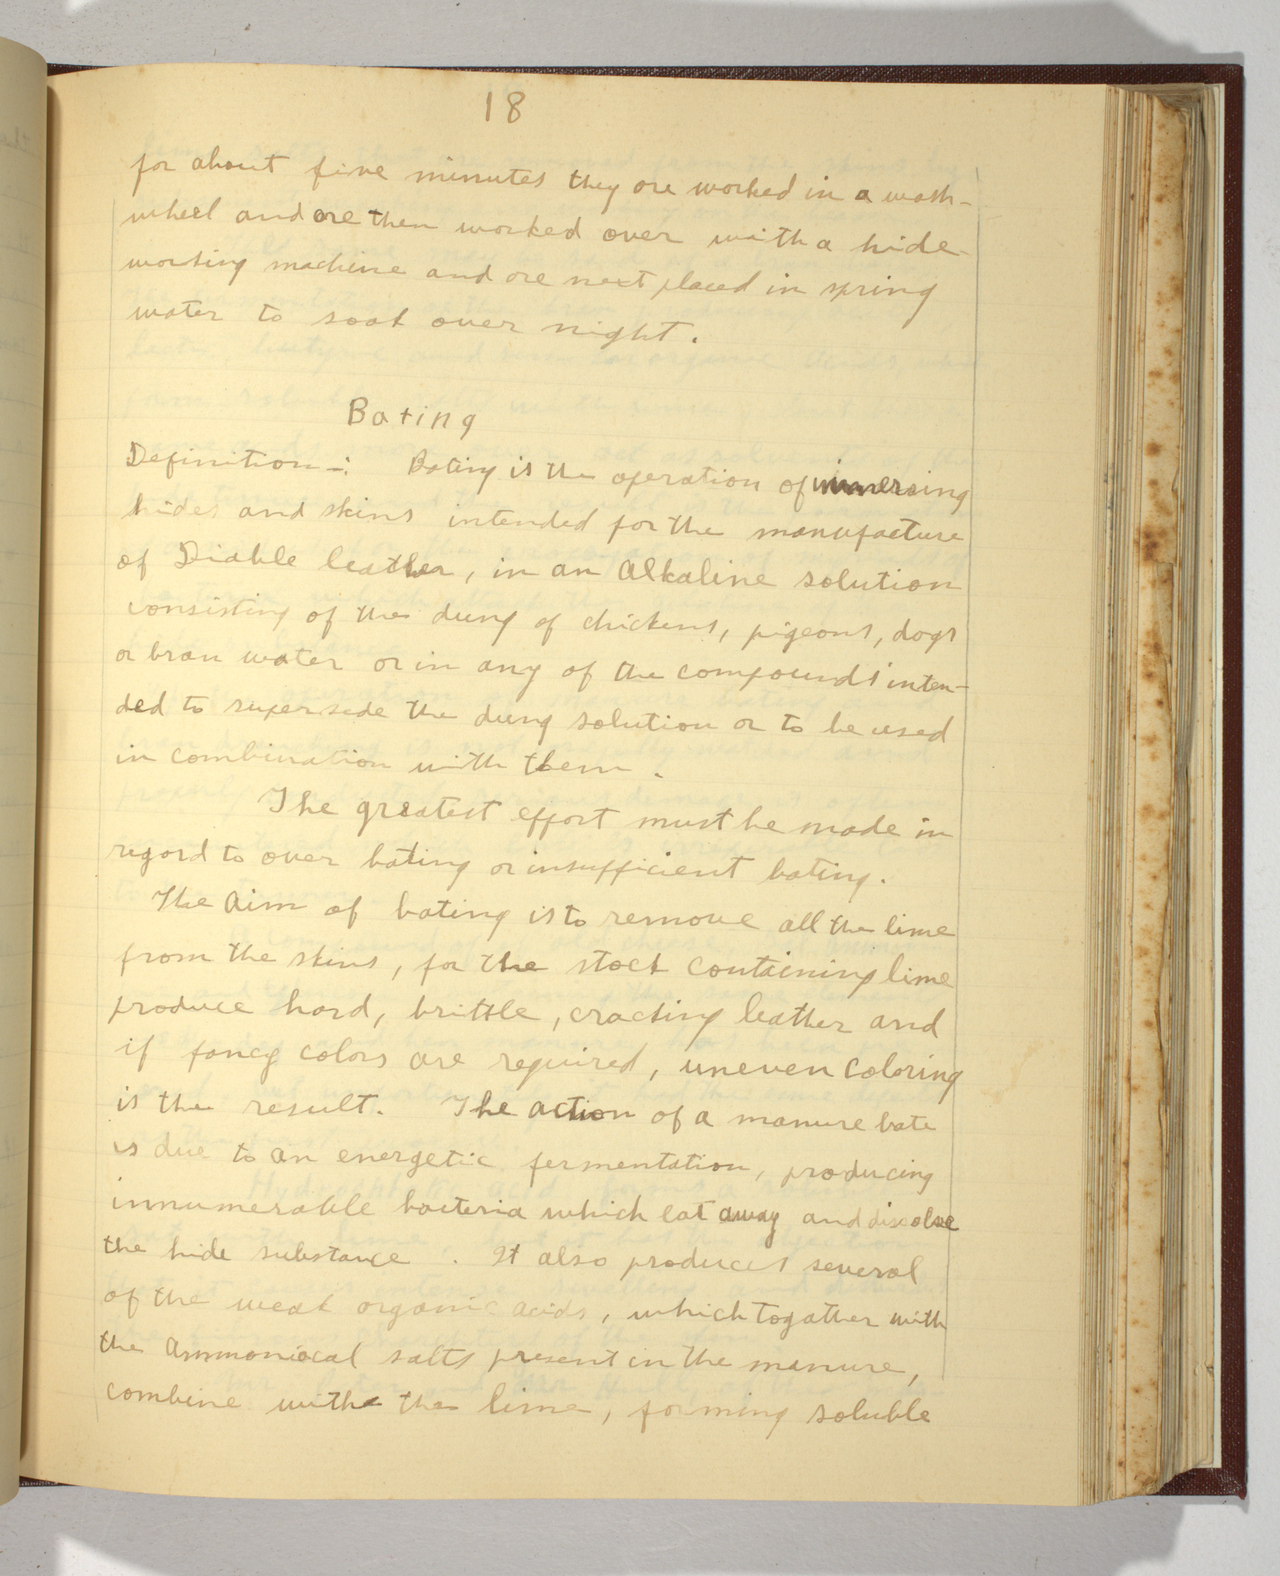 18
for about five minutes they are worked in a wash-
wheel and are then worked over with a hide-
working machine and are next placed in spring
water to soak over night.
Bating
Definition -: Bating is the operation of immersing
hides and skins intended for the manufacture
of Diable leather, in an alkaline solution
consisting of the dung of chickens, pigeons, dogs
or bran water or in any of the compounds inten-
ded to supersede the dung solution or to be used
in combination with them.
The greatest effort must be made in
regard to over bating or insufficient bating.
The aim of bating is to remove all the lime
from the skins, for the stock containing lime
produce hard, brittle, cracking leather and
if fancy colors are required, uneven coloring
is the result. The action of a manure bate
is due to an energetic fermentation, producing
innumerable bacteria which eat away and dissolve
the hide substance. It also produces several
of the weak organic acids, which togather with
the ammoniacal salts present in the manure,
combine with the lime, forming soluble